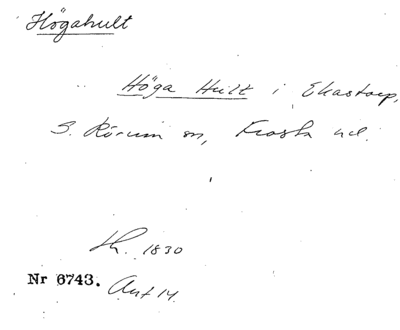 Högahult
Höga Hult i Ekastorp,
S. Rörum sn, Frosta hd.
1830
Nr 6743. Avt 14